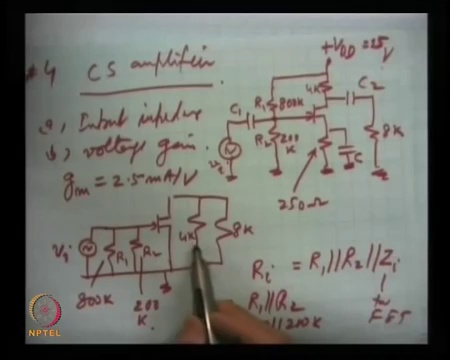 #4 CS amplifier
a, Input impedance
b, voltage gain.
gm = 2.5 mA/V
+VDD = 25 V
4K
C2
R1 800K
C1
R2 200 K
8K
C
250Ω
Vi
R1
R2
4K
8K
800K
200 K.
Ri = R1 || R2 || Zi
R1 || R2
200K
FET
NPTEL